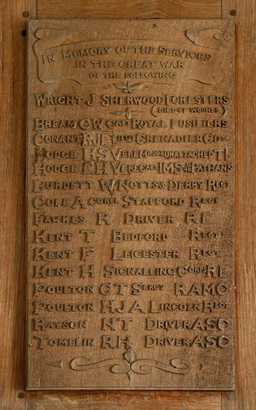 IN MEMORY OF THE SERVICES
IN THE GREAT WAR
OF THE FOLLOWING
WRIGHT J SHERWOOD FORESTERS
(DIED OF WOUNDS)
BREAM C W ROYAL FUSILIERS
CONANT R.J.E GRENADIER GDS
HODGE H S V
HODGE E H V IMS PATHANS
BURDETT W NOTTS & DERBY REGT
COLE A STAFFORD REGT
FAWKES R DRIVER R E
KENT T BEDFORD REGT
KENT F LEICESTER REGT
KENT H SIGNALLING CORPS R E
POULTON C T SERGT RAMC
POULTON H J A LINCOLN REGT
RAYSON N T DRIVER ASC
TOMBLIN R H DRIVER ASC